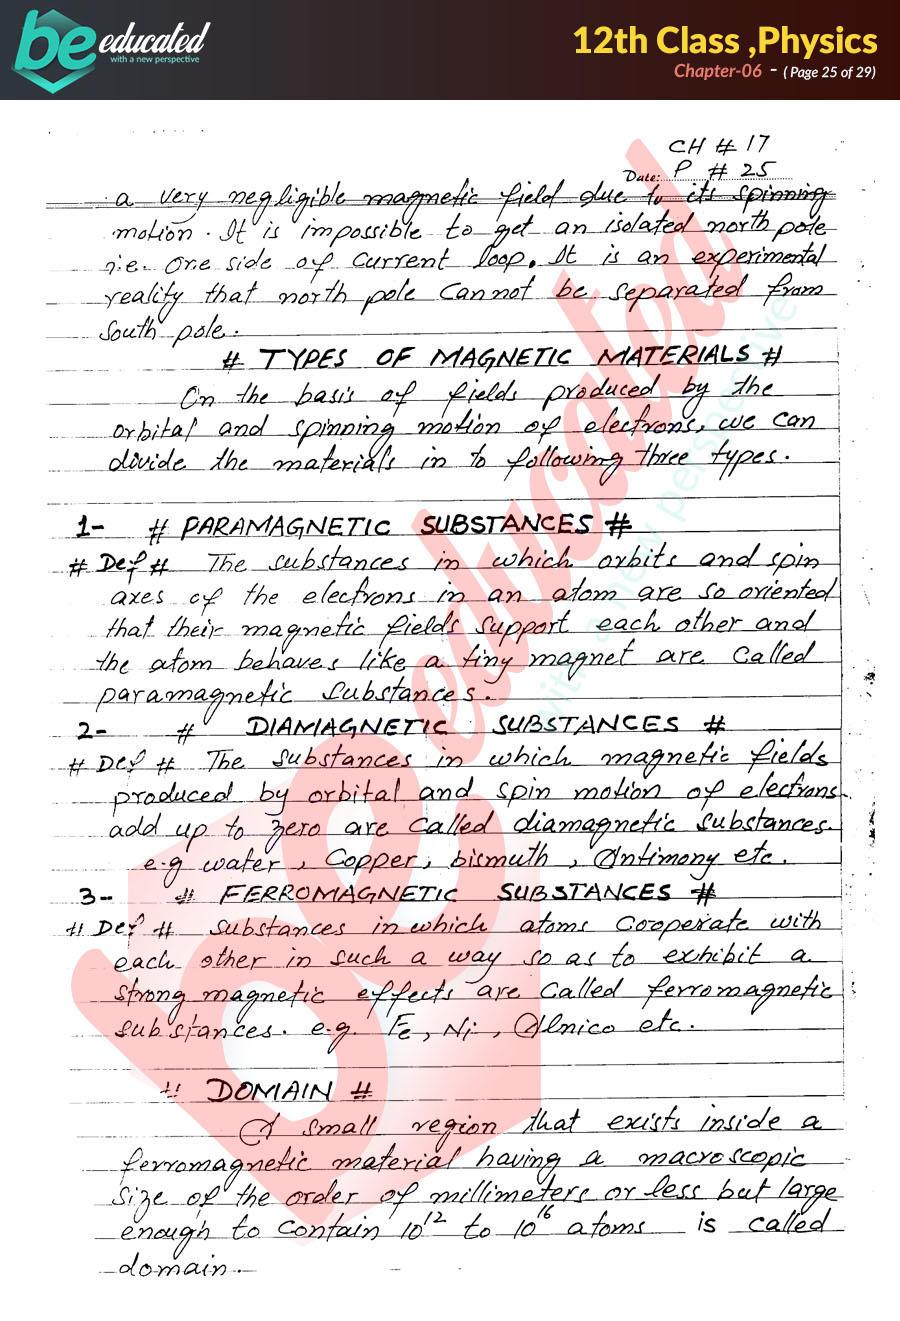 be educated
with a new perspective
12th Class ,Physics
Chapter-06 - ( Page 25 of 29)
CH # 17
Date: P # 25
a very negligible magnetic field due to its spinning
motion. It is impossible to get an isolated north pole
i.e. one side of current loop. It is an experimental
reality that north pole cannot be separated from
South pole.
# TYPES OF MAGNETIC MATERIALS #
On the basis of fields produced by the
orbital and spinning motion of electrons, we can
divide the materials in to following three types.
1- # PARAMAGNETIC SUBSTANCES #
# Def # The substances in which orbits and spin
axes of the electrons in an atom are so oriented
that their magnetic fields support each other and
the atom behaves like a tiny magnet are called
paramagnetic substances.
2- # DIAMAGNETIC SUBSTANCES #
# Def # The substances in which magnetic fields
produced by orbital and spin motion of electrons
add up to zero are called diamagnetic substances.
e.g water, Copper, bismuth, Antimony etc.
3- # FERROMAGNETIC SUBSTANCES #
# Def # Substances in which atoms cooperate with
each other in such a way so as to exhibit a
strong magnetic effects are called ferromagnetic
substances. e.g. Fe, Ni, Alnico etc.
# DOMAIN #
A small region that exists inside a
ferromagnetic material having a macroscopic
size of the order of millimeters or less but large
enough to contain 10¹² to 10¹⁶ atoms is called
domain.
be educated
with a new perspective